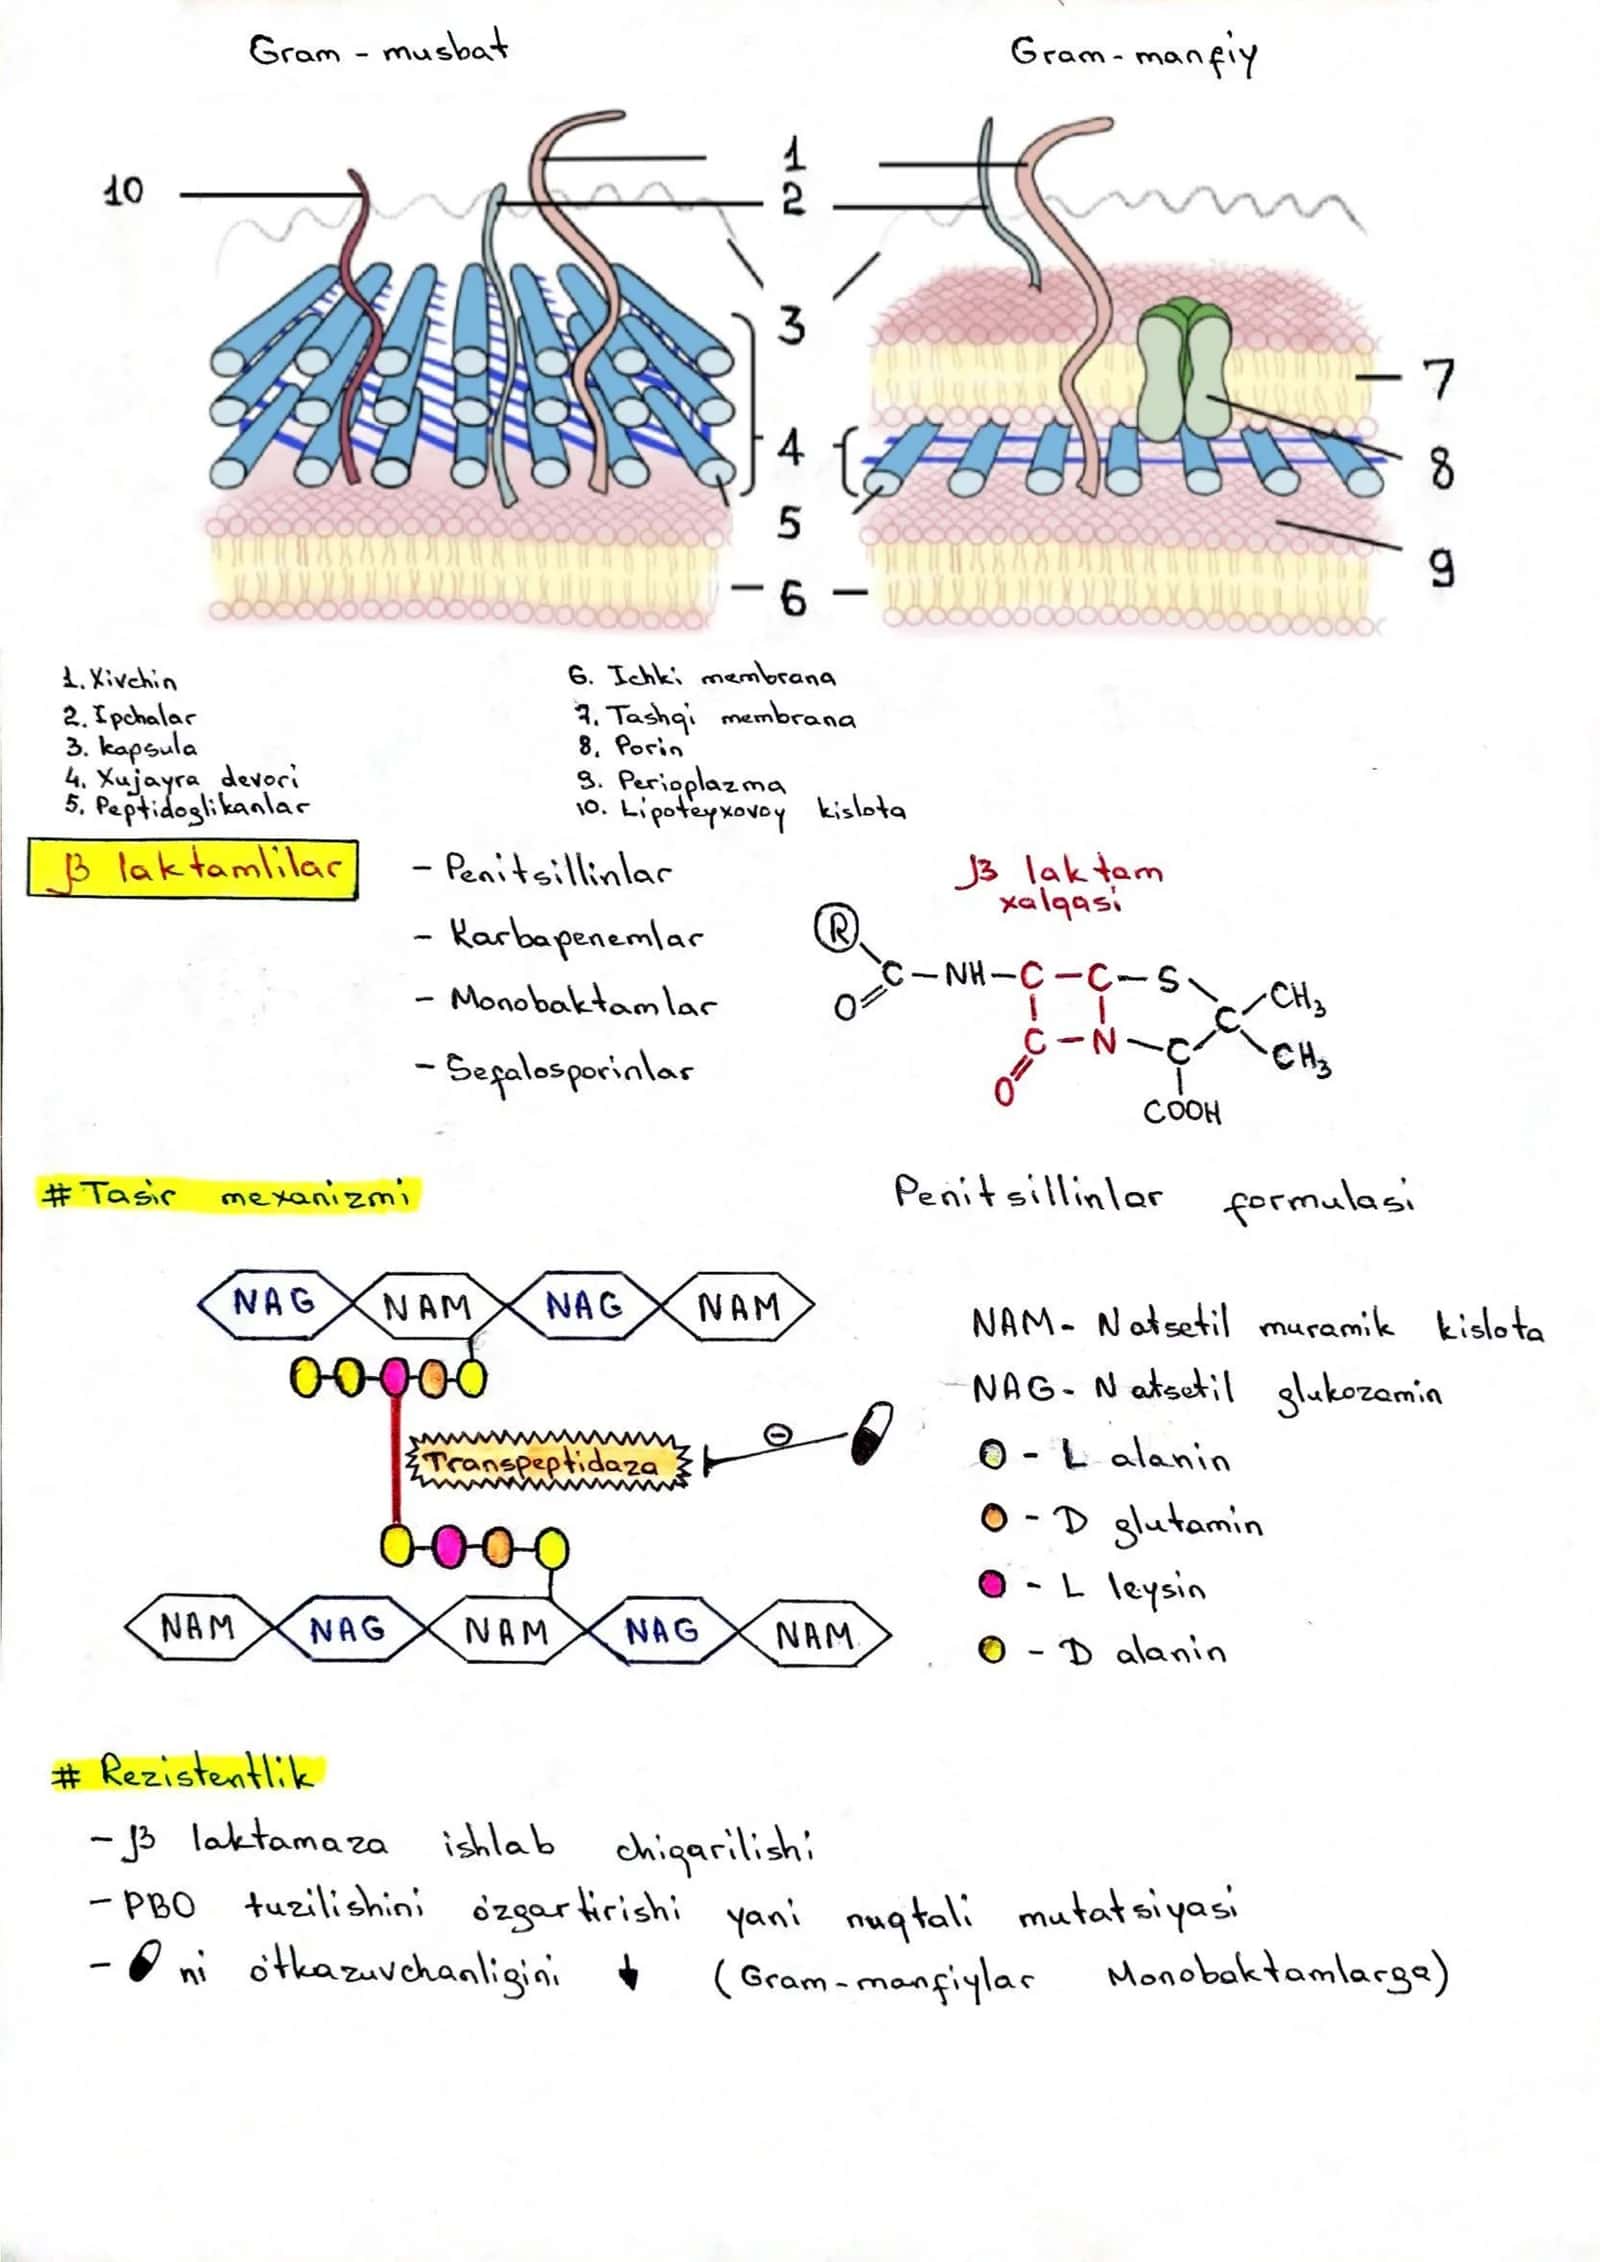 Gram - musbat
Gram - manfiy
10
1
2
3
4
5
6
7
8
9
1. Xivchin
2. Ipchalar
3. kapsula
4. Xujayra devori
5. Peptidoglikanlar
6. Ichki membrana
7. Tashqi membrana
8. Porin
9. Perioplazma
10. Lipoteyxovoy kislota
β laktamlilar
- Penitsillinlar
- Karbapenemlar
- Monobaktamlar
- Sefalosporinlar
β laktam
xalqasi
R
C-NH-C-C-S
O
CH3
C
C-N-C
CH3
O
COOH
Penitsillinlar formulasi
# Tasir mexanizmi
NAG NAM NAG NAM
Transpeptidaza
NAM NAG NAM NAG NAM
NAM- Natsetil muramik kislota
NAG- Natsetil glukozamin
- L alanin
- D glutamin
- L leysin
- D alanin
# Rezistentlik
- β laktamaza ishlab chiqarilishi
- PBO tuzilishini o'zgartirishi yani nuqtali mutatsiyasi
- ni o'tkazuvchanligini ↓ (Gram-manfiylar Monobaktamlarga)